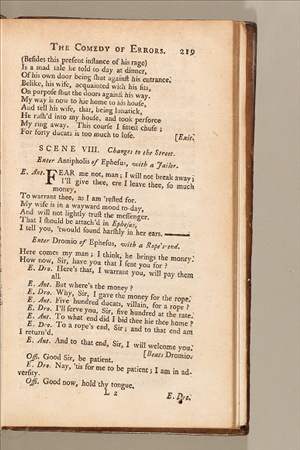 THE COMEDY OF ERRORS. 219
(Besides this present instance of his rage)
Is a mad tale he told to day at dinner,
Of his own door being shut against his entrance.
Belike, his wife, acquainted with his fits,
On purpose shut the doors against his way.
My way is now to hie home to his house,
And tell his wife, that, being lunatick,
He rush'd into my house, and took perforce
My ring away. This course I fittest chuse;
For forty ducats is too much to lose. [Exit.
SCENE VIII. Changes to the Street.
Enter Antipholis of Ephesus, with a Jailor.
E. Ant. FEAR me not, man; I will not break away;
I'll give thee, ere I leave thee, so much
money,
To warrant thee, as I am 'rested for.
My wife is in a wayward mood to-day,
And will not lightly trust the messenger.
That I should be attach'd in Ephesus,
I tell you, 'twould sound harshly in her ears.
Enter Dromio of Ephesus, with a Rope's-end.
Here comes my man; I think, he brings the money.
How now, Sir, have you that I sent you for?
E. Dro. Here's that, I warrant you, will pay them
all.
E. Ant. But where's the money?
E. Dro. Why, Sir, I gave the money for the rope.
E. Ant. Five hundred ducats, villain, for a rope?
E. Dro. I'll serve you, Sir, five hundred at the rate.
E. Ant. To what end did I bid thee hie thee home?
E. Dro. To a rope's end, Sir; and to that end am
I return'd.
E. Ant. And to that end, Sir, I will welcome you.
[Beats Dromio.
Off. Good Sir, be patient.
E. Dro. Nay, 'tis for me to be patient; I am in ad-
versity.
Off. Good now, hold thy tongue.
L 2 E. Dro.